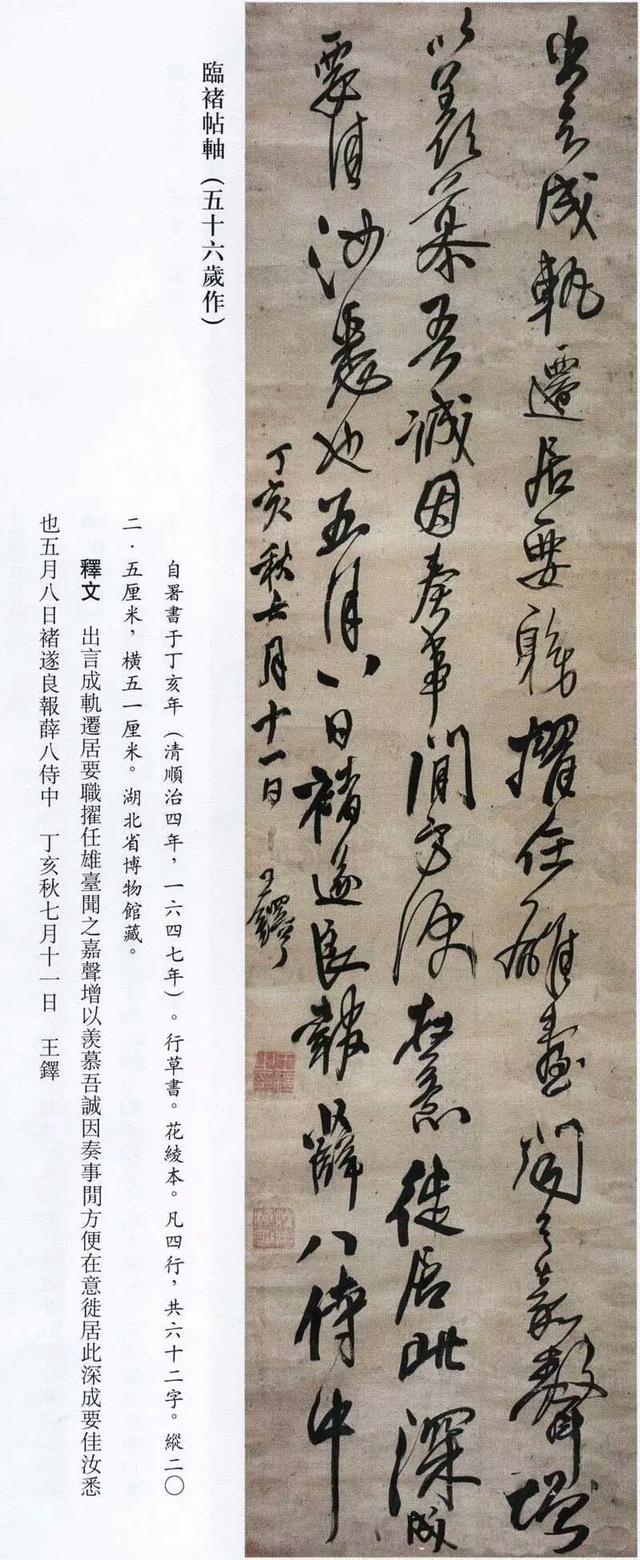 出言成軌遷居要職擢任雄臺聞之嘉聲增
以羨慕吾誠因奏事閒方便在意徙居此深成
要佳汝悉也五月八日褚遂良報薛八侍中
丁亥秋七月十一日 王鐸
臨褚帖軸（五十六歲作）
自署書于丁亥年（清順治四年，一六四七年）。行草書。花綾本。凡四行，共六十二字。縱二〇
二·五厘米，橫五一厘米。湖北省博物館藏。
釋文 出言成軌遷居要職擢任雄臺聞之嘉聲增以羨慕吾誠因奏事閒方便在意徙居此深成要佳汝悉
也五月八日褚遂良報薛八侍中 丁亥秋七月十一日 王鐸